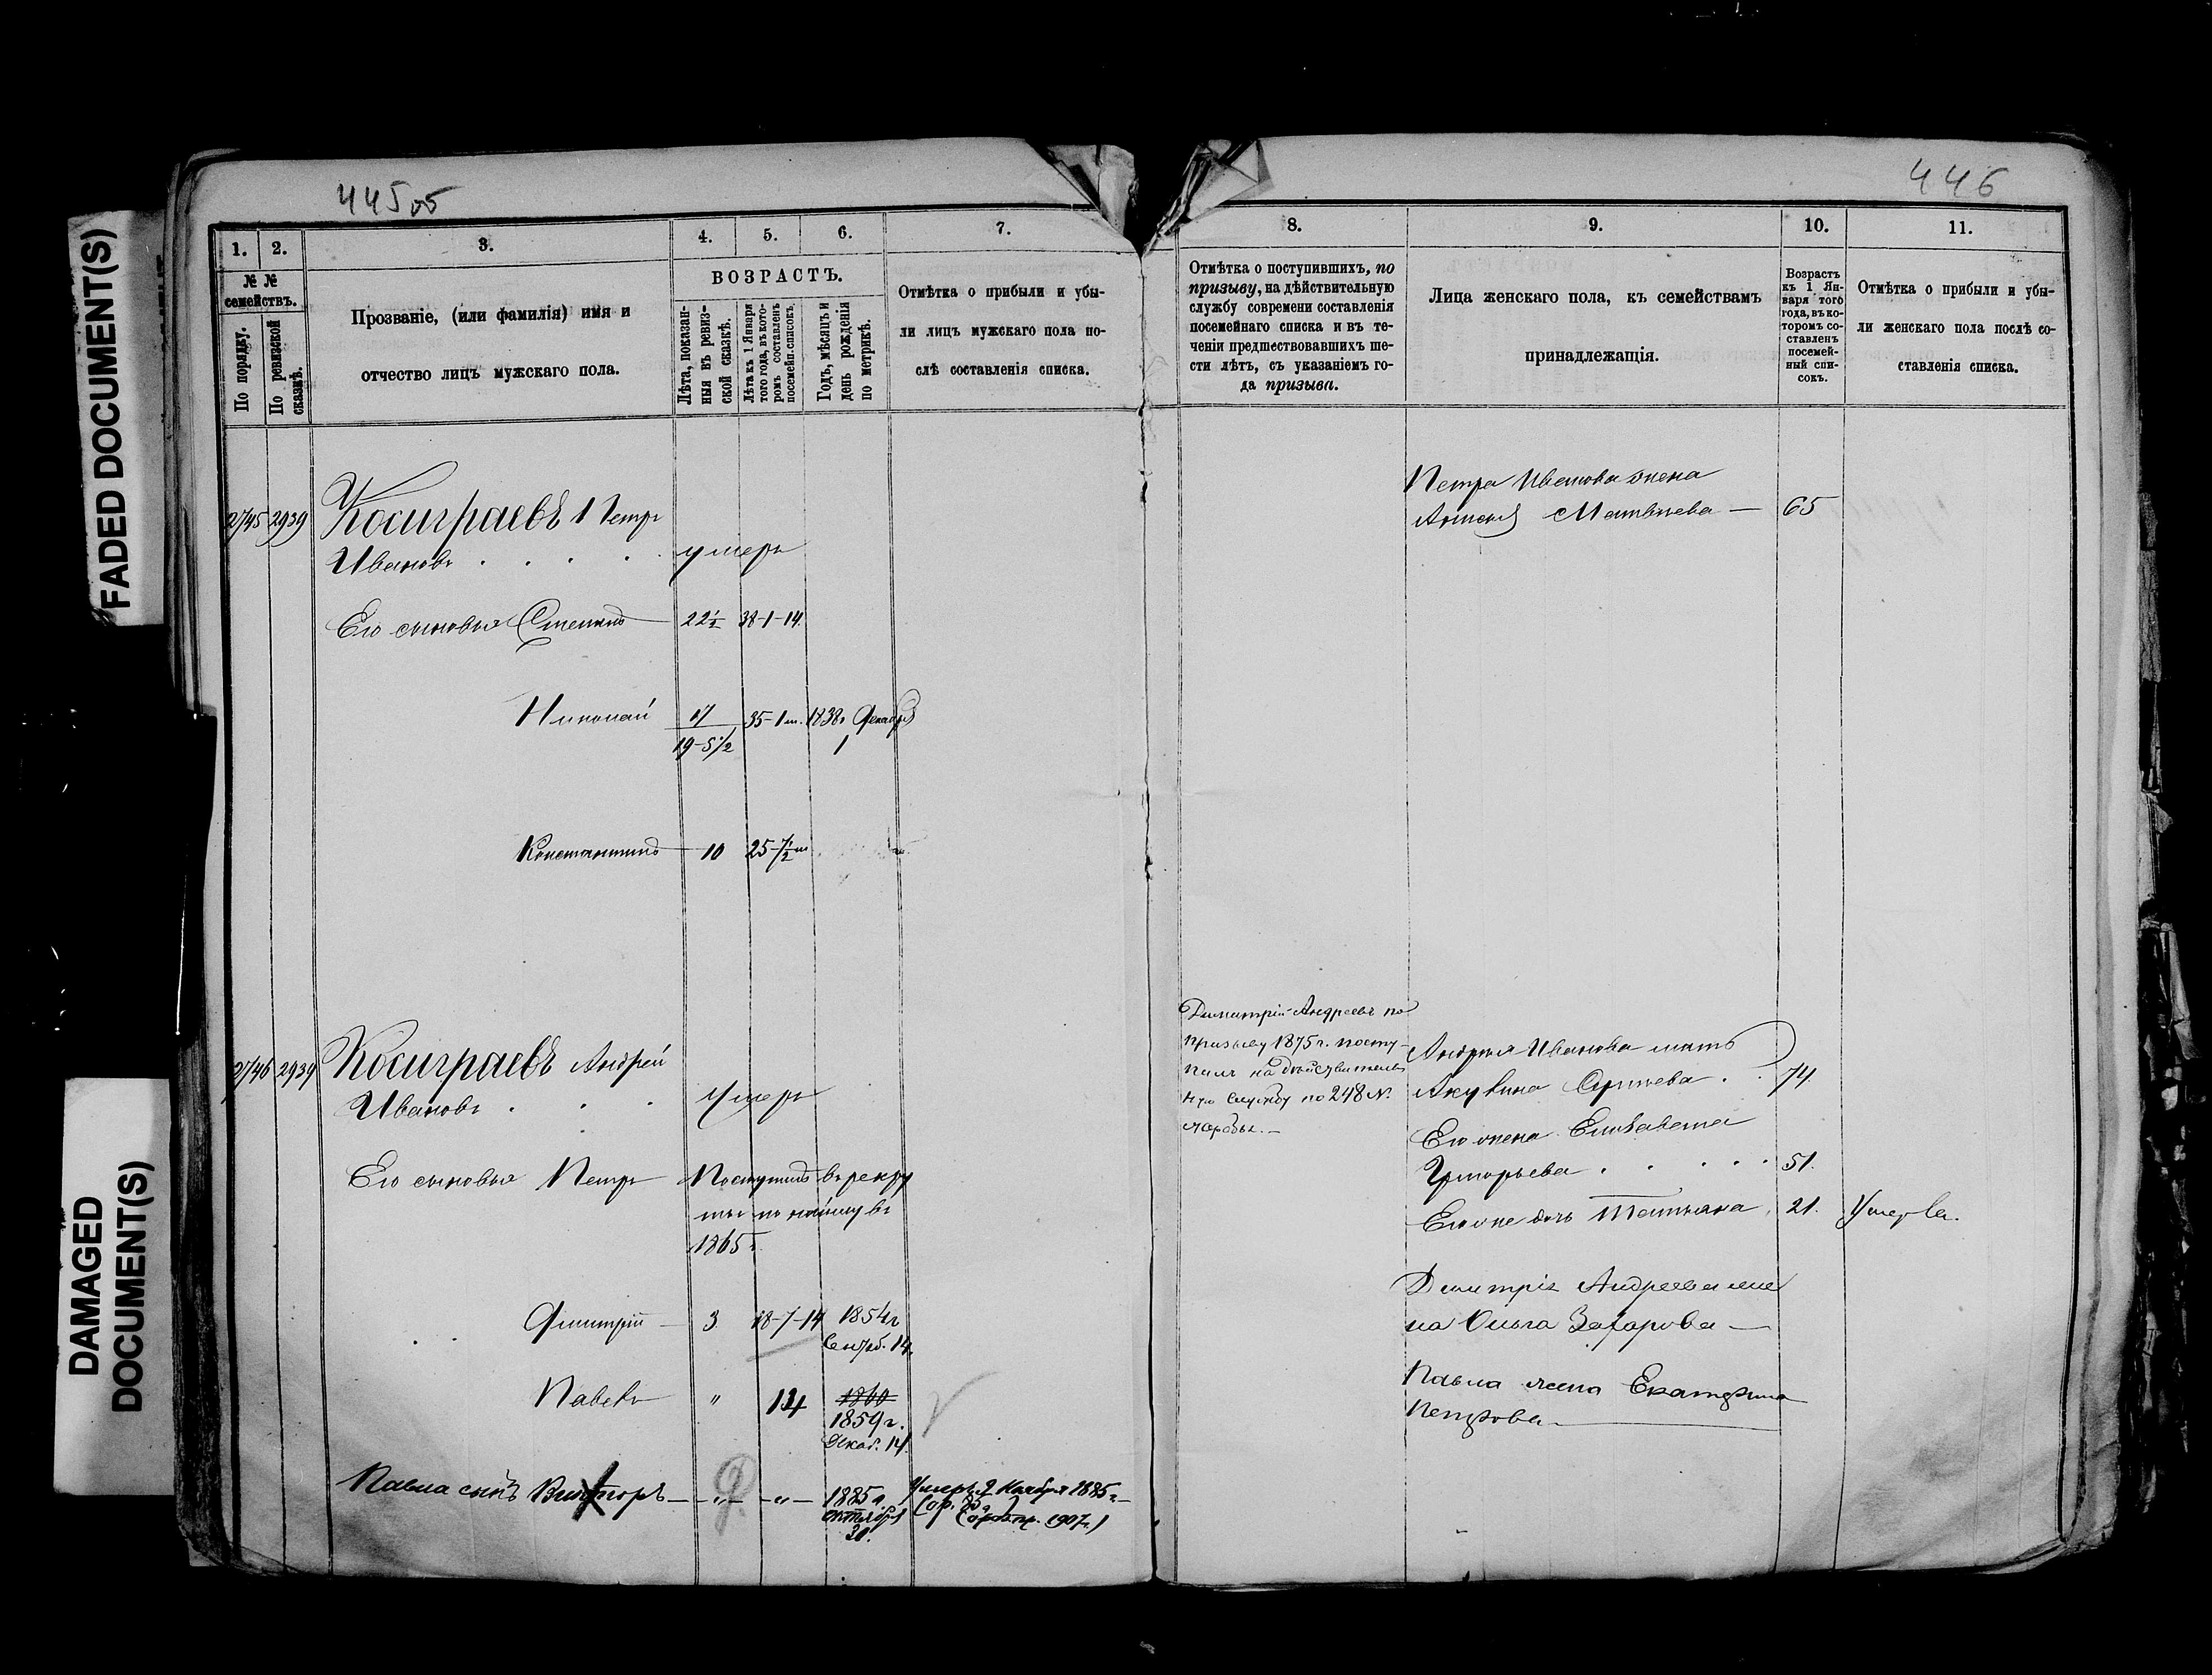 FADED DOCUMENT(S)
DAMAGED
DOCUMENT(S)
445 об
1.
2.
3.
4.
5.
6.
7.
№ №
семействъ.
По порядку.
По ревизской
сказкѣ.
Прозваніе, (или фамилія) имя и
отчество лицъ мужскаго пола.
ВОЗРАСТЪ.
Лѣта, показан-
ныя въ ревиз-
ской сказкѣ.
Лѣта къ 1 Января
того года, въ кото-
ромъ составленъ
посемейн. списокъ.
Годъ, мѣсяцъ и
день рожденія
по метрикѣ.
Отмѣтка о прибыли и убы-
ли лицъ мужскаго пола по-
слѣ составленія списка.
2745 2939 Косиграевъ 1 Петръ
Ивановъ умеръ
Его сыновья Степанъ 22½ 38-1-14.
Николай 17 35-1 м. 1838г Декабря
19-5½ 1
Константинъ 10 25-7½ м
2746 2939 Косиграевъ Андрей
Ивановъ умеръ
Его сыновья Петръ Поступилъ въ рекру
ты по найму въ
1865 г.
Дмитрій 3 18-7-14 1854 г
Сентяб. 14.
Павелъ " 14 1860
1859 г.
Декаб. 14.
Павла сынъ Викторъ — " — " — 1885 г. Умеръ 2 Ноября 1885 г.
октября
20. 1907 г.)
446
8.
9.
10.
11.
Отмѣтка о поступившихъ, по
призыву, на дѣйствительную
службу современи составленія
посемейнаго списка и въ те-
ченіи предшествовавшихъ ше-
сти лѣтъ, съ указаніемъ го-
да призыва.
Лица женскаго пола, къ семействамъ
принадлежащія.
Возрастъ
къ 1 Ян-
варя того
года, въ ко-
торомъ со-
ставленъ
посемей-
ный спи-
сокъ.
Отмѣтка о прибыли и убы-
ли женскаго пола послѣ со-
ставленія списка.
Петра Иванова жена
Матвѣева — 65
Димитрій Андреевъ по
призыву 1875 г. посту-
пилъ на дѣйствитель
ную службу по 248 №
жеребья. —
Андрея Иванова мать
Акулина Сергѣева 74.
Его жена Елизавета
Григорьева 51.
Его же дочь Татьяна 21. Умерла.
Димитрія Андреева же
на Ольга Захарова —
Павла жена Екатерина
Петрова